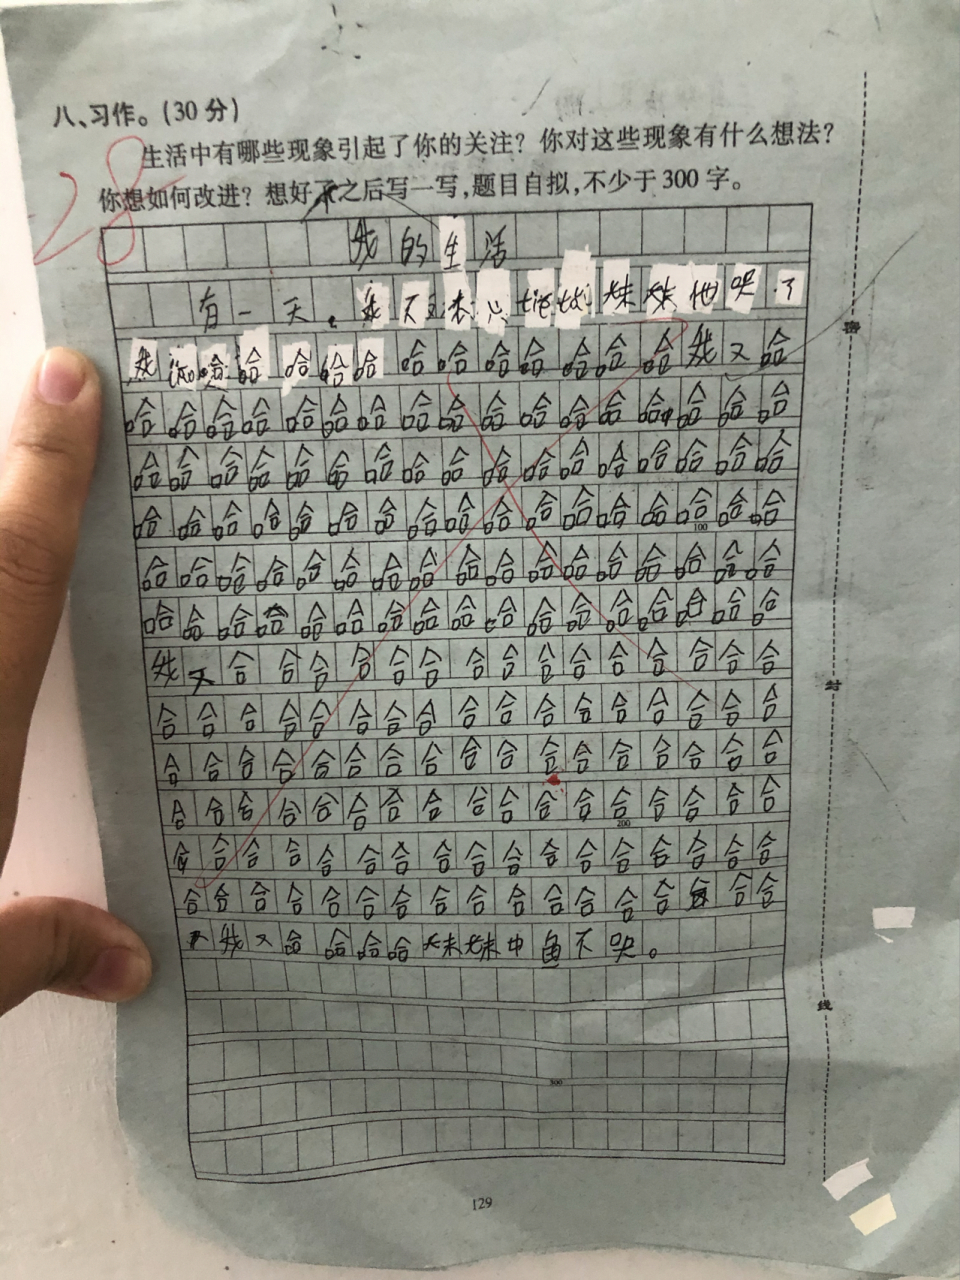 八、习作。(30分)
28
生活中有哪些现象引起了你的关注？你对这些现象有什么想法？
你想如何改进？想好了之后写一写,题目自拟,不少于300字。
我的生活
有一天。我不心妹妹她哭了
我说哈哈哈哈哈哈哈哈哈哈哈哈我又哈
哈哈哈哈哈哈哈哈哈哈哈哈哈哈哈哈哈
哈哈哈哈哈哈哈哈哈哈哈哈哈哈哈哈哈
哈哈哈哈哈哈哈哈哈哈哈哈哈哈哈哈哈
100
哈哈哈哈哈哈哈哈哈哈哈哈哈哈哈哈哈
哈哈哈哈哈哈哈哈哈哈哈哈哈哈哈哈哈
我又合合合合合合合合合合合合合合合
合合合合合合合合合合合合合合合合合
合合合合合合合合合合合合合合合合合
合合合合合合合合合合合合合合合合合
200
合合合合合合合合合合合合合合合合合
合合合合合合合合合合合合合合合合合
我又合哈哈哈妹妹中鱼不哭。
300
129
密
封
线